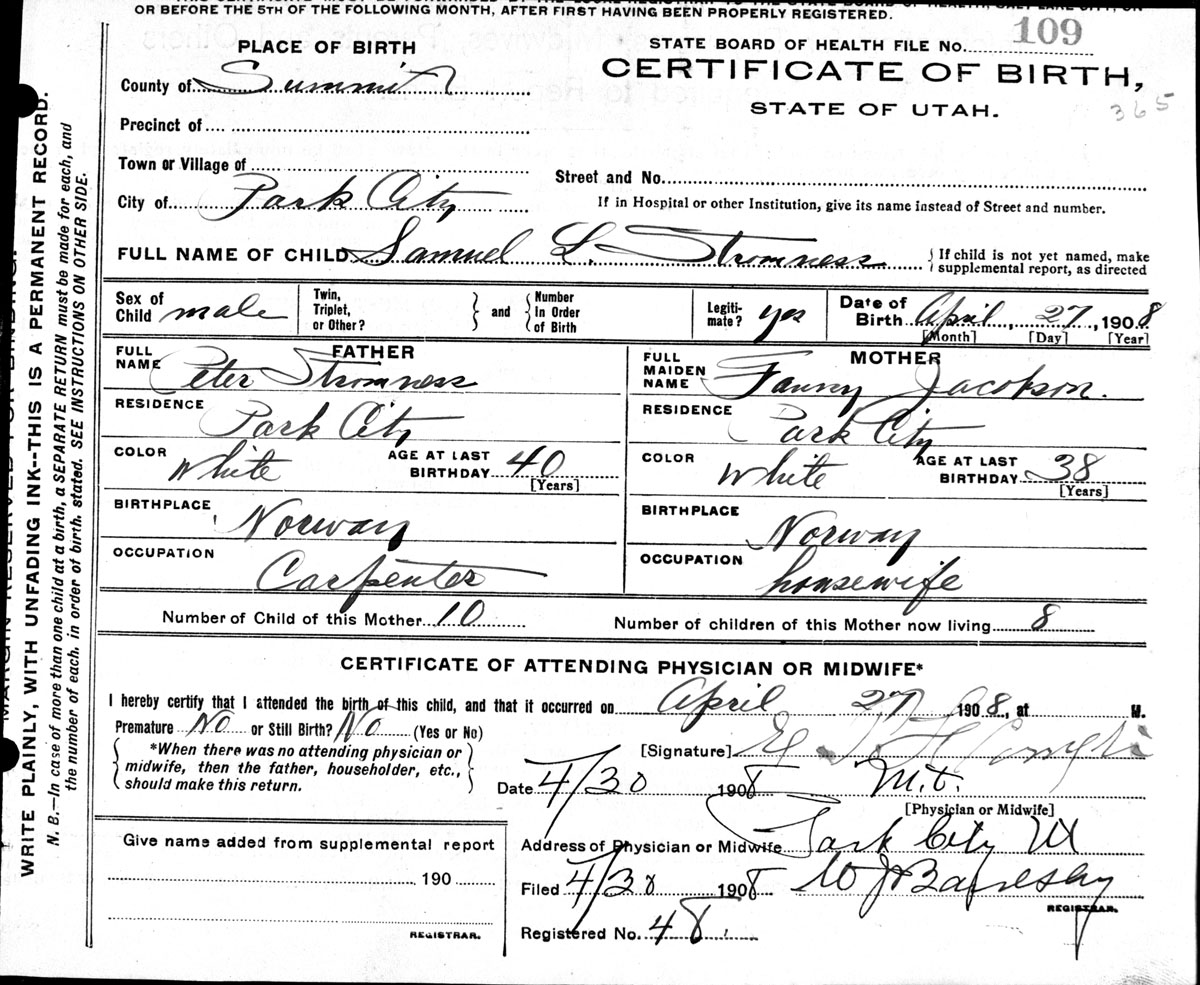 OR BEFORE THE 5TH OF THE FOLLOWING MONTH, AFTER FIRST HAVING BEEN PROPERLY REGISTERED.
PLACE OF BIRTH
STATE BOARD OF HEALTH FILE No. 109
CERTIFICATE OF BIRTH,
STATE OF UTAH.
365
County of Summit
Precinct of
Town or Village of
Street and No.
City of Park City
If in Hospital or other Institution, give its name instead of Street and number.
FULL NAME OF CHILD Samuel L. Stromness
{ If child is not yet named, make supplemental report, as directed
Sex of Child male
Twin, Triplet, or Other? } and { Number In Order of Birth
Legitimate? yes
Date of Birth April, 27, 1908
[Month] [Day] [Year]
FATHER
FULL NAME Peter Stromness
RESIDENCE Park City
COLOR White AGE AT LAST BIRTHDAY 40
[Years]
BIRTHPLACE Norway
OCCUPATION Carpenter
MOTHER
FULL MAIDEN NAME Fanny Jacobson.
RESIDENCE Park City
COLOR White AGE AT LAST BIRTHDAY 38
[Years]
BIRTHPLACE Norway
OCCUPATION housewife
Number of Child of this Mother 10
Number of children of this Mother now living 8
CERTIFICATE OF ATTENDING PHYSICIAN OR MIDWIFE*
I hereby certify that I attended the birth of this child, and that it occurred on April 27 1908, at M.
Premature No or Still Birth? No (Yes or No)
{ *When there was no attending physician or midwife, then the father, householder, etc., should make this return. }
[Signature]
Date 4/30 1908
[Physician or Midwife]
Address of Physician or Midwife Park City
Filed 4/30 1908
REGISTRAR.
Registered No. 48
Give name added from supplemental report
190
REGISTRAR.
WRITE PLAINLY, WITH UNFADING INK--THIS IS A PERMANENT RECORD.
N. B.—In case of more than one child at a birth, a SEPARATE RETURN must be made for each, and
the number of each, in order of birth, stated. SEE INSTRUCTIONS ON OTHER SIDE.